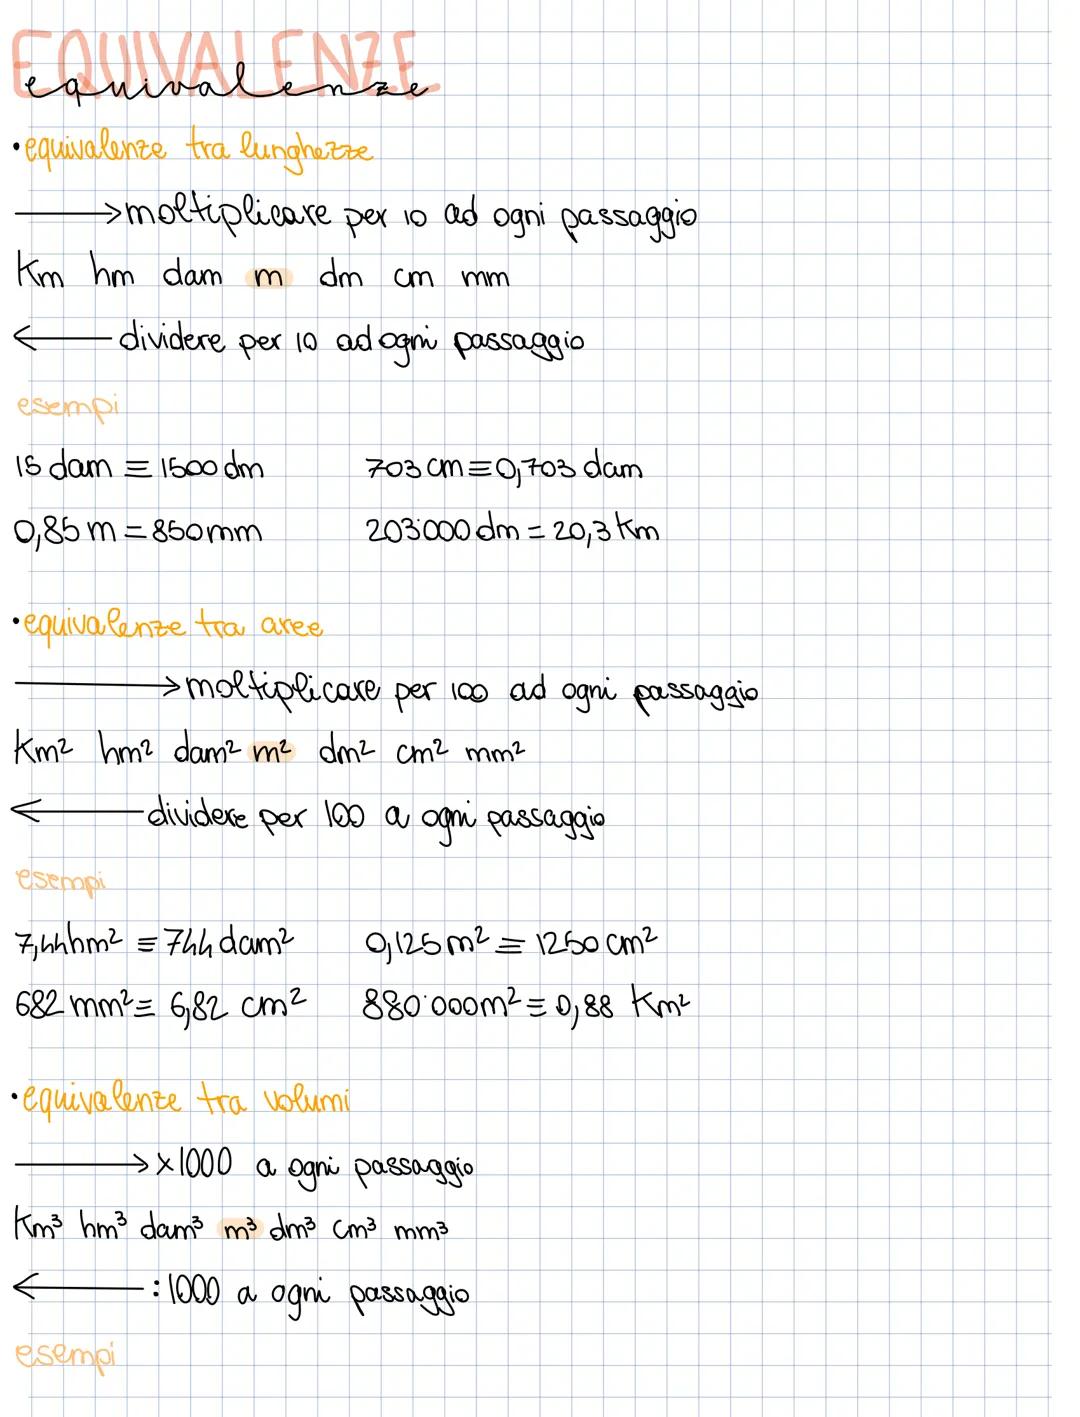 EQUIVALENZE
equivalenze
•equivalenze tra lunghezze
→moltiplicare per 10 ad ogni passaggio
Km hm dam m dm cm mm
← dividere per 10 ad ogni passaggio
esempi
15 dam = 1500 dm 703 cm = 0,703 dam
0,85 m = 850 mm 203'000 dm = 20,3 Km
•equivalenze tra aree
→moltiplicare per 100 ad ogni passaggio
Km² hm² dam² m² dm² cm² mm²
← dividere per 100 a ogni passaggio
esempi
7,44 hm² = 744 dam² 0,125 m² = 1250 cm²
682 mm² = 6,82 cm² 880'000 m² = 0,88 Km²
•equivalenze tra volumi
→ ×1000 a ogni passaggio
Km³ hm³ dam³ m³ dm³ cm³ mm³
← :1000 a ogni passaggio
esempi